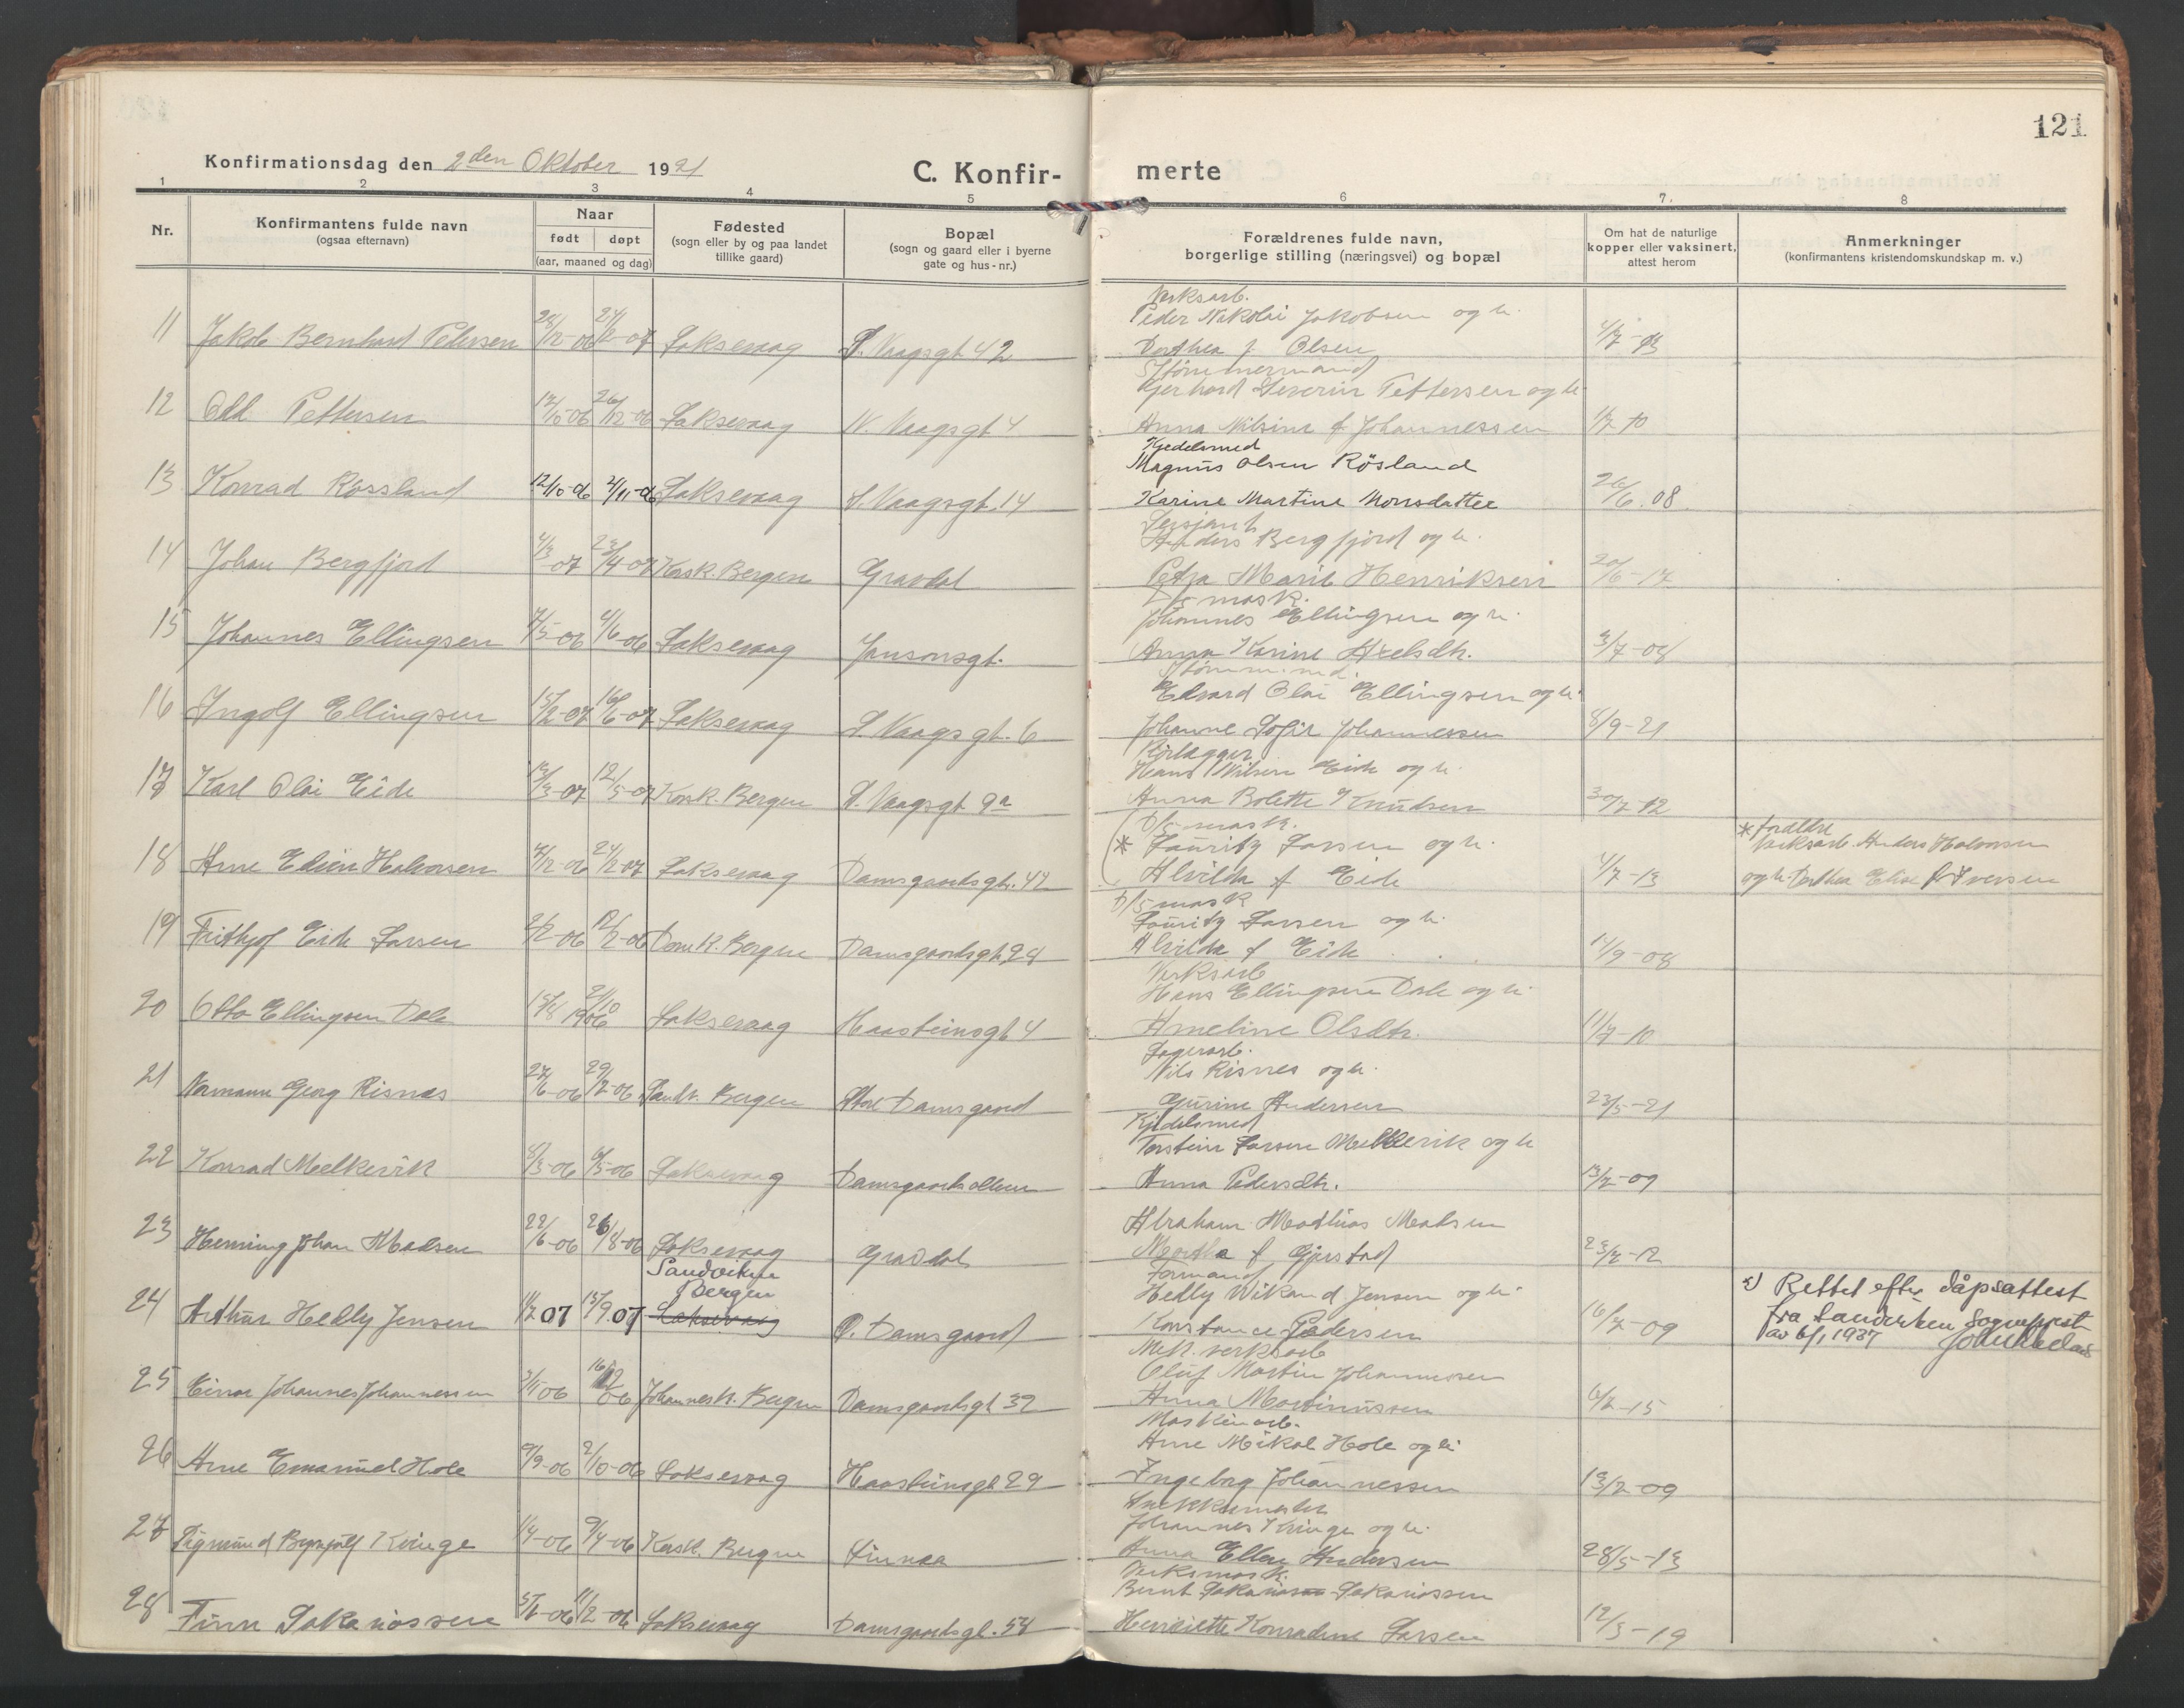 121
Konfirmationsdag den 2den Oktober 1921
C. Konfir- merte
1 2 3 4 5 6 7. 8
Nr.
Konfirmantens fulde navn
(ogsaa efternavn)
Naar
født døpt
(aar, maaned og dag)
Fødested
(sogn eller by og paa landet
tillike gaard)
Bopæl
(sogn og gaard eller i byerne
gate og hus-nr.)
Forældrenes fulde navn,
borgerlige stilling (næringsvei) og bopæl
Om hat de naturlige
kopper eller vaksinert,
attest herom
Anmerkninger
(konfirmantens kristendomskundskap m. v.)
Verksarb.
Peder Nikolai Jakobsen og h.
11 Jakob Bernhard Petersen 28/12-06 Laksevaag S. Vaagsgt 42 Dorthea f. Olsen 4/7-13
Tømmermand
Gerhard Severin Pettersen og h.
12 Odd Pettersen 12/10-06 26/12-06 Laksevaag N. Vaagsgt 4 Anna Nilsine f Johannessen 1/7-10
Kjedelsmed
Magnus Olsen Røsland
13 Konrad Røssland 12/10-06 2/11-06 Laksevaag S. Vaagsgt. 14 Karine Martine Monsdatter 26/6.08
Sersjant
Anders Bergfjord og h.
14 Johan Bergfjord 4/3-07 23/4-07 Korsk. Bergen Gravdal Petra Marie Henriksen 20/6-17
D/S mask.
Johannes Ellingsen og h.
15 Johannes Ellingsen 7/5-06 4/6-06 Laksevaag Jansonsgt. Anna Karine Axelsdtr. 3/7-08
Tømmermd.
Edvard Olai Ellingsen og h.
16 Ingolf Ellingsen 15/2-07 16/6-07 Laksevaag S. Vaagsgt. 6 Johanne Sofie Johannessen 8/9-21
Rørlægger
Hans Nilsen Eide og h.
17 Karl Olai Eide 13/3-07 12/5-07 Korsk. Bergen S. Vaagsgt 9a Anna Bolette Knudsen 30/7-12
D/S mask.
* Lauritz Larsen og h.
* foreldre
Verksarb. Anders Halvorsen
18 Arne Edvin Halvorsen 7/12-06 24/2-07 Laksevaag Damsgaardsgt. 42 Alvilda f Eide 4/7-13 og h. Dorthea Elise f Iversen
D/S mask
Lauritz Larsen og h.
19 Frithjof Eide Larsen Domk. Bergen Damsgaardsgt 28 Alvilda f Eide 14/9-08
Verksarb
Hans Ellingsen Dale og h.
20 Otto Ellingsen Dale 15/8 21/10 1906 Laksevaag Haasteinsgt 4 Ameline Olsdtr. 11/7-10
Lagerarb.
Nils Risnes og h.
21 Normann Georg Risnæs 27/6-06 29/12-06 Bergen Store Damsgaard Gurine Andersen 23/5-21
Kjedelsmed
Torstein Larsen Melkevik og h
22 Konrad Melkevik 8/3-06 6/5-06 Laksevaag Damsgaardsalleen Anna Pedersdtr. 13/7-09
Abraham Mathias Madsen
23 Henning Johan Madsen 22/6-06 26/8-06 Laksevaag Gravdal Martha f Gjerstad 23/7-12
Sandviken
Bergen
Formand
Helly Wikand Jensen og h.
x) Rettet efter dåpsattest
24 Arthur Helly Jensen 11/7 07 15/9.07 Laksevaag S. Damsgaard Konstance Pedersen 16/7-09 fra Sandviken Sogneprest
av 6/1 1937
Mek. verksarb
Oluf Martin Johannessen
25 Einar Johannes Johannessen 3/11 06 16/12 06 Johannesk. Bergen Damsgaardsgt 32 Anna Martinussen 6/2-15
Maskinarb.
Arne Mikal Hole og h.
26 Arne Emanuel Hole 9/9-06 2/10-06 Laksevaag Haasteinsgt 29 Ingeborg Johannessen 13/2-09
Johannes Kringe og h.
27 Sigmund Bynjulf Kringe 1/4-06 9/4-06 Korsk. Bergen Anna Ellen Andersen 28/5-13
Verksmask.
Bernt Sakarias Sakariassen
28 Finn Sakariassen 5/1-06 11/2-06 Laksevaag Damsgaardsgt. 54 Henriette Konradine Larsen 12/3-19